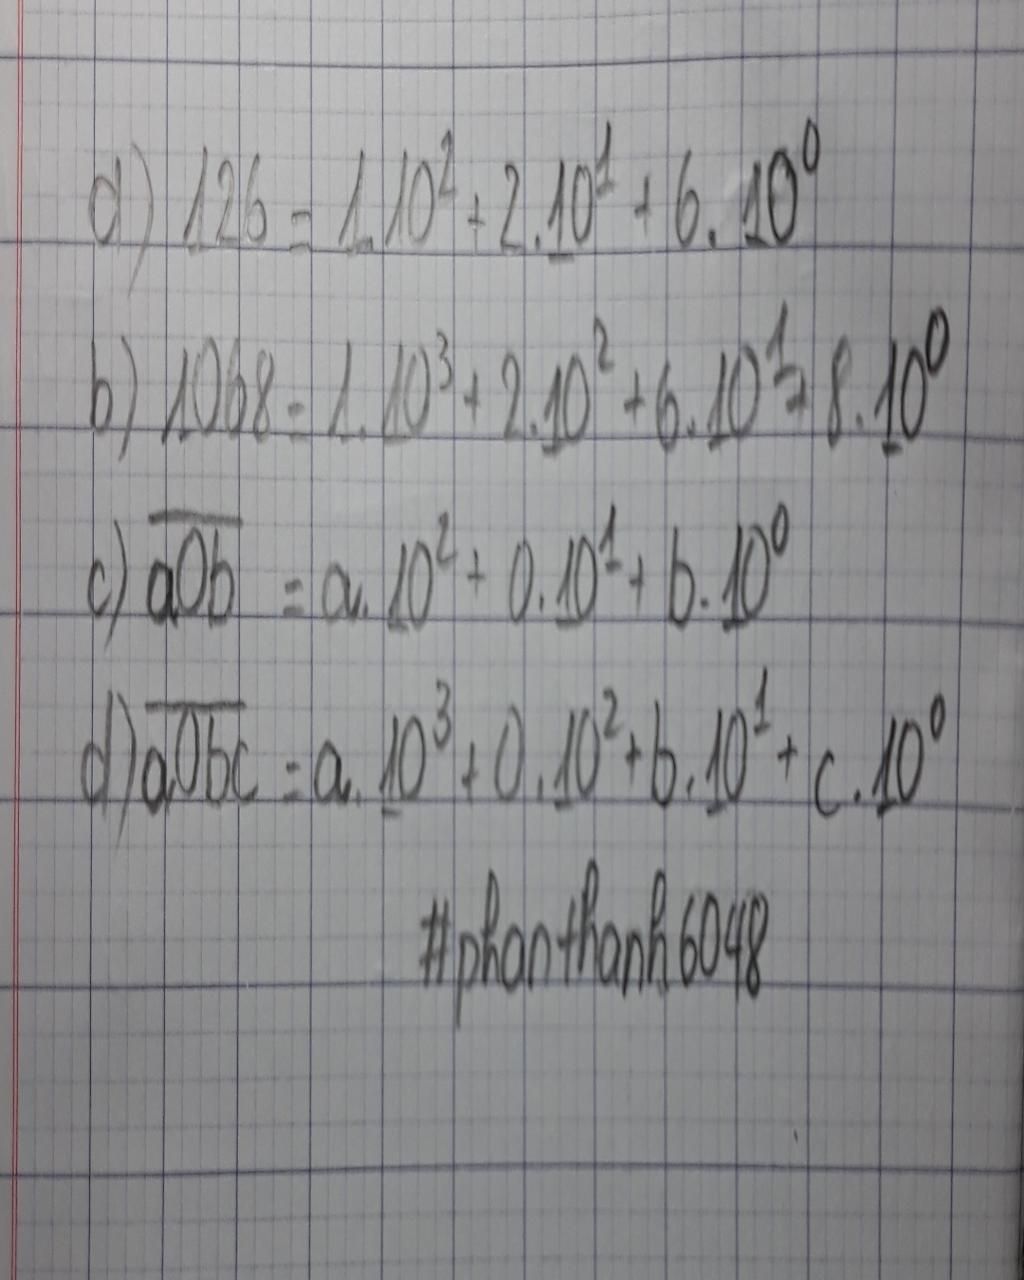 a) 126 = 1.10² + 2.10¹ + 6.10⁰
b) 1068 = 1.10³ + 2.10² + 6.10¹ + 8.10⁰
c) a̅0̅b̅ = a.10² + 0.10¹ + b.10⁰
d) a̅0̅b̅c̅ = a.10³ + 0.10² + b.10¹ + c.10⁰
#phanthanh6048